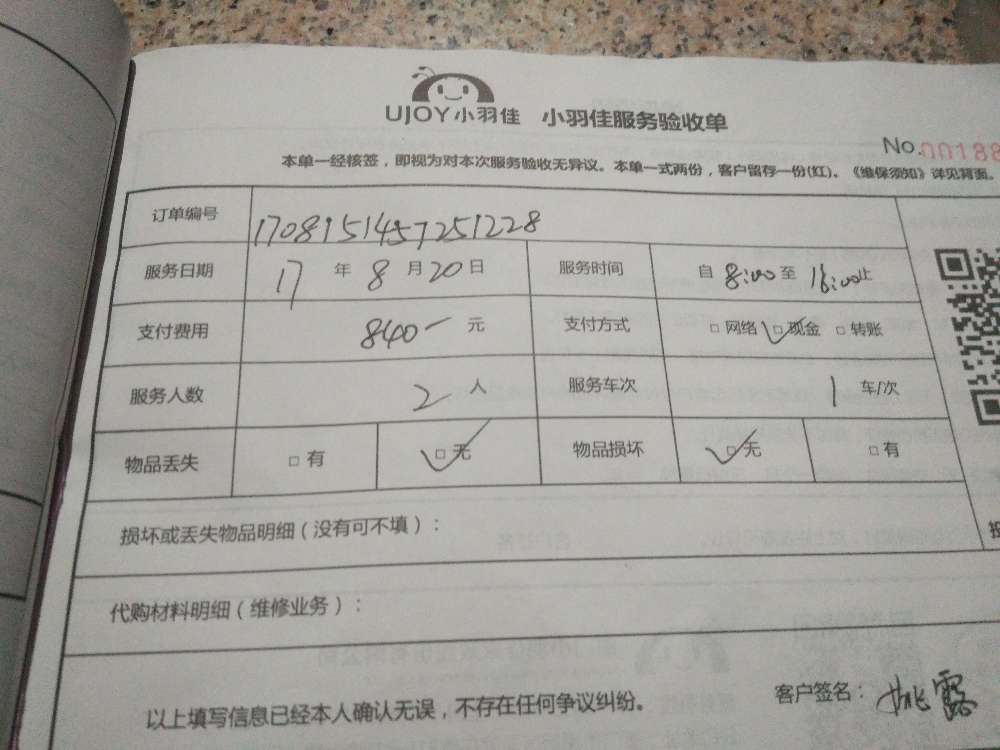 UJOY小羽佳 小羽佳服务验收单
No.00188
本单一经核签，即视为对本次服务验收无异议。本单一式两份，客户留存一份(红)。《维保须知》详见背面。
订单编号 1708151457251228
服务日期 17 年 8 月 20 日 服务时间 自 8:00 至 16:00 止
支付费用 840 元 支付方式 □ 网络 □ 现金 □ 转账
服务人数 2 人 服务车次 1 车/次
物品丢失 □ 有 □ 无 物品损坏 □ 无 □ 有
损坏或丢失物品明细（没有可不填）：
代购材料明细（维修业务）：
以上填写信息已经本人确认无误，不存在任何争议纠纷。
客户签名：姚露